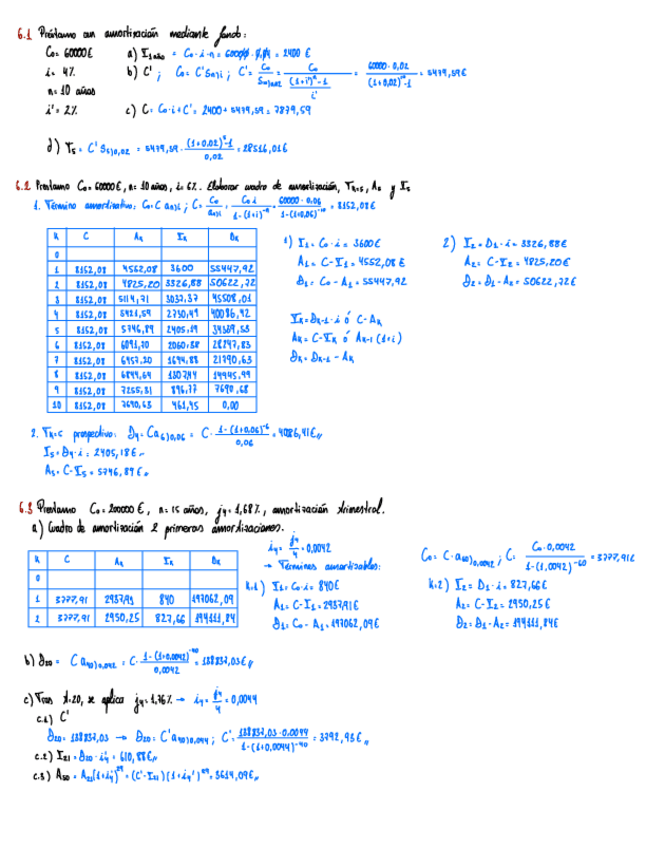 6.1 Préstamo con amortización mediante fondo:
C₀ = 60000€
i = 4%
n = 10 años
i' = 2%
a) I₁ año = C₀·i·n = 60000·0,04 = 2400 €
b) C'; C₀ = C' Sn⌉i; C' = C₀/S₁₀⌉₀,₀₂ = C₀/(((1+i')ⁿ-1)/i') = 60000·0,02/((1+0,02)¹⁰-1) = 5479,59€
c) C = C₀·i + C' = 2400 + 5479,59 = 7879,59
d) T₅ = C' S₅⌉₀,₀₂ = 5479,59 · ((1+0,02)⁵-1)/0,02 = 28516,016
6.2 Préstamo C₀ = 60000€, n = 10 años, i = 6%. Elaborar cuadro de amortización, Tk=5, A₅ y I₅
1. Término amortizativo: C₀ = C an⌉i; C = C₀/an⌉i = C₀·i/(1-(1+i)⁻ⁿ) = 60000·0,06/(1-(1+0,06)⁻¹⁰) = 8152,08€
K C Ak Ik Dk
0
1 8152,08 4552,08 3600 55447,92
2 8152,08 4825,20 3326,88 50622,72
3 8152,08 5114,71 3037,37 45508,01
4 8152,08 5421,59 2730,49 40086,42
5 8152,08 5746,89 2405,19 34339,53
6 8152,08 6091,70 2060,38 28247,83
7 8152,08 6457,20 1694,88 21790,63
8 8152,08 6844,64 1307,44 14945,99
9 8152,08 7255,31 896,77 7690,68
10 8152,08 7690,63 461,45 0,00
1) I₁ = C₀·i = 3600€
A₁ = C - I₁ = 4552,08 €
D₁ = C₀ - A₁ = 55447,92
2) I₂ = D₁·i = 3326,88€
A₂ = C - I₂ = 4825,20€
D₂ = D₁ - A₂ = 50622,72€
Ik = Dk-1·i ó C - Ak
Ak = C - Ik ó Ak-1(1+i)
Dk = Dk-1 - Ak
2. Tk=5 prospectivo: D₄ = C a₆⌉₀,₀₆ = C · (1-(1+0,06)⁻⁶)/0,06 = 4086,41€
I₅ = D₄·i = 2405,18€
A₅ = C - I₅ = 5746,89€
6.3 Préstamo C₀ = 200000€, n = 15 años, j₄ = 1,68%, amortización trimestral.
a) Cuadro de amortización 2 primeras amortizaciones.
K C Ak Ik Dk
0
1 3777,91 2937,91 840 197062,09
2 3777,91 2950,25 827,66 194111,84
i₄ = j₄/4 = 0,0042
→ Términos amortizables:
C₀ = C·a₆₀⌉₀,₀₀₄₂; C = C₀·0,0042/(1-(1,0042)⁻⁶⁰) = 3777,91€
K=1) I₁ = C₀·i = 840€
A₁ = C - I₁ = 2937,91€
D₁ = C₀ - A₁ = 197062,09€
K=2) I₂ = D₁·i = 827,66€
A₂ = C - I₂ = 2950,25€
D₂ = D₁ - A₂ = 194111,84€
b) D₂₀ = C a₄₀⌉₀,₀₀₄₂ = C · (1-(1+0,0042)⁻⁴⁰)/0,0042 = 138837,03€
c) Tras t=20, se aplica j₄ = 1,76% → i₄ = j₄/4 = 0,0044
c.1) C'
D₂₀ = 138837,03 → D₂₀ = C' a₄₀⌉₀,₀₀₄₄; C' = 138837,03·0,0044/(1-(1+0,0044)⁻⁴⁰) = 3792,93€
c.2) I₂₁ = D₂₀·i₄' = 610,88€
c.3) A₅₀ = A₂₁(1+i₄')²⁹ = (C'-I₂₁)(1+i₄')²⁹ = 3614,09€